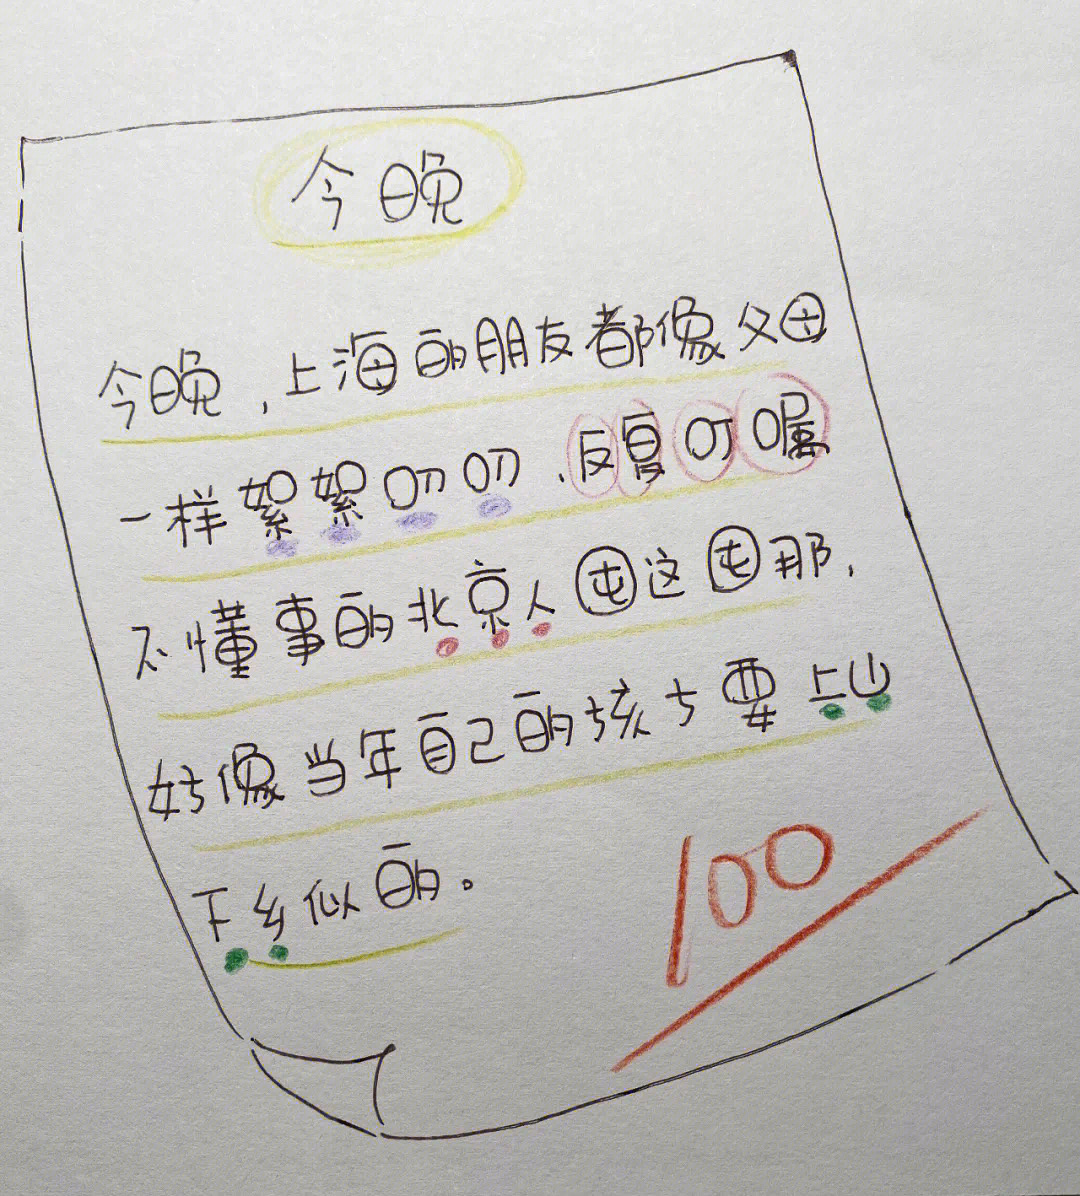 今晚
今晚，上海的朋友都像父母
一样絮絮叨叨、反复叮嘱
不懂事的北京人囤这囤那，
好像当年自己的孩子要上山
下乡似的。
100